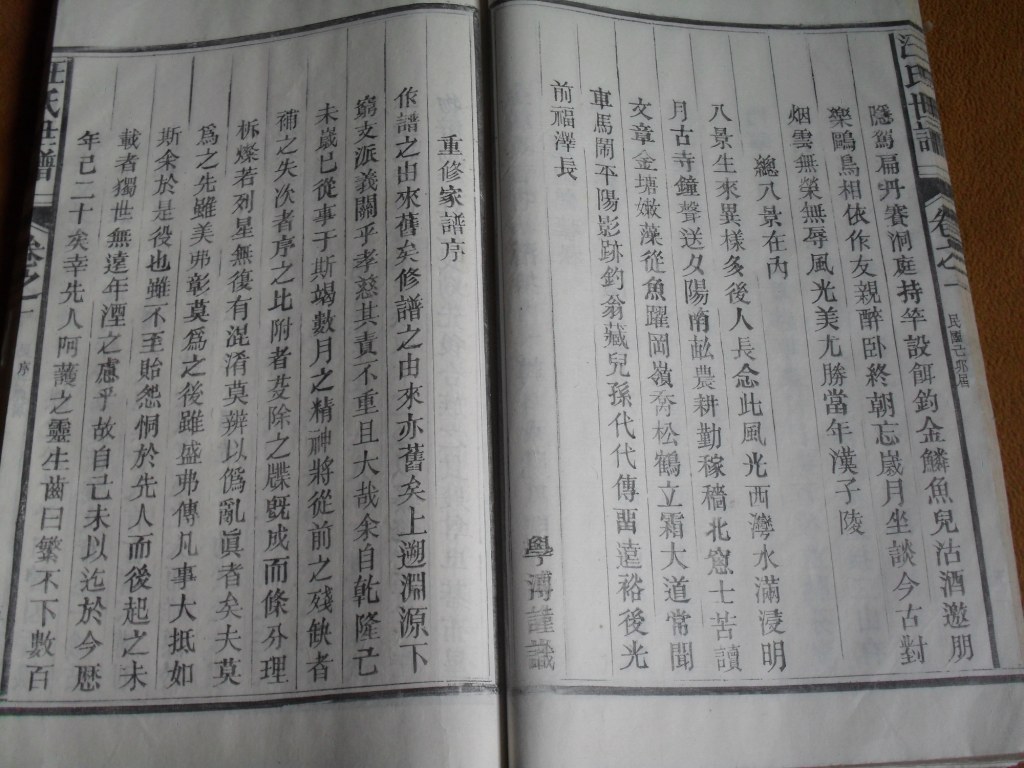 汪氏世譜
卷之一
隱駕扁丹賽洞庭持竿設餌釣金鱗魚兒沽酒邀朋
樂鷗鳥相依作友親醉卧終朝忘嵗月坐談今古對
烟雲無榮無辱風光美尤勝當年漢子陵
總八景在內
八景生來異樣多後人長念此風光西灣水滿浸明
月古寺鐘聲送夕陽南畝農耕勤稼穡北窻士苦讀
文章金塘嫩藻從魚躍岡嶺喬松鶴立霜大道常聞
車馬鬧平陽影跡釣翁藏兒孫代代傳畱遠裕後光
前福澤長
學溥謹識
重修家譜序
依譜之由來舊矣修譜之由來亦舊矣上遡淵源下
窮支派義關乎孝慈其責不重且大哉余自乾隆己
未嵗已從事于斯竭數月之精神將從前之殘缺者
補之失次者序之比附者芟除之牒旣成而條分理
析燦若列星無復有混淆莫辨以僞亂眞者矣夫莫
爲之先雖美弗彰莫爲之後雖盛弗傳凡事大抵如
斯余於是役也雖不至貽怨恫於先人而後起之未
載者獨世無遠年湮之慮乎故自己未以迄於今歷
年已二十矣幸先人呵護之靈生齒日繁不下數百
汪氏世譜
卷之一
序